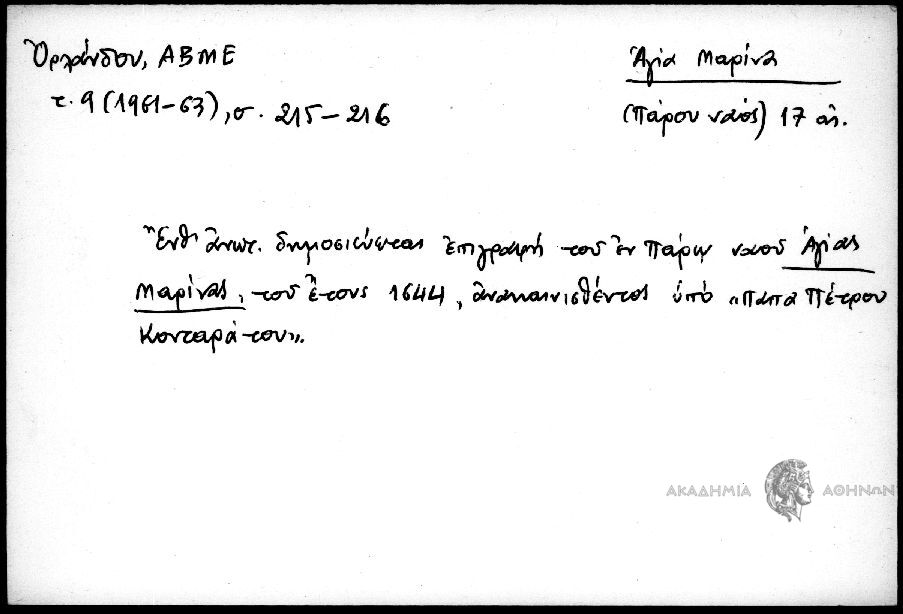 Ὀρλάνδου, ΑΒΜΕ
τ. 9 (1961-63), σ. 215-216
Ἁγία Μαρίνα
(Πάρου ναός) 17 αἰ.
Ἔνθ' ἀνωτ. δημοσιεύεται ἐπιγραφή τοῦ ἐν Πάρῳ ναοῦ Ἁγίας
Μαρίνας, τοῦ ἔτους 1644, ἀνακαινισθέντος ὑπό «Παπα Πέτρου
Κονταράτου».
ΑΚΑΔΗΜΙΑ ΑΘΗΝΩΝ